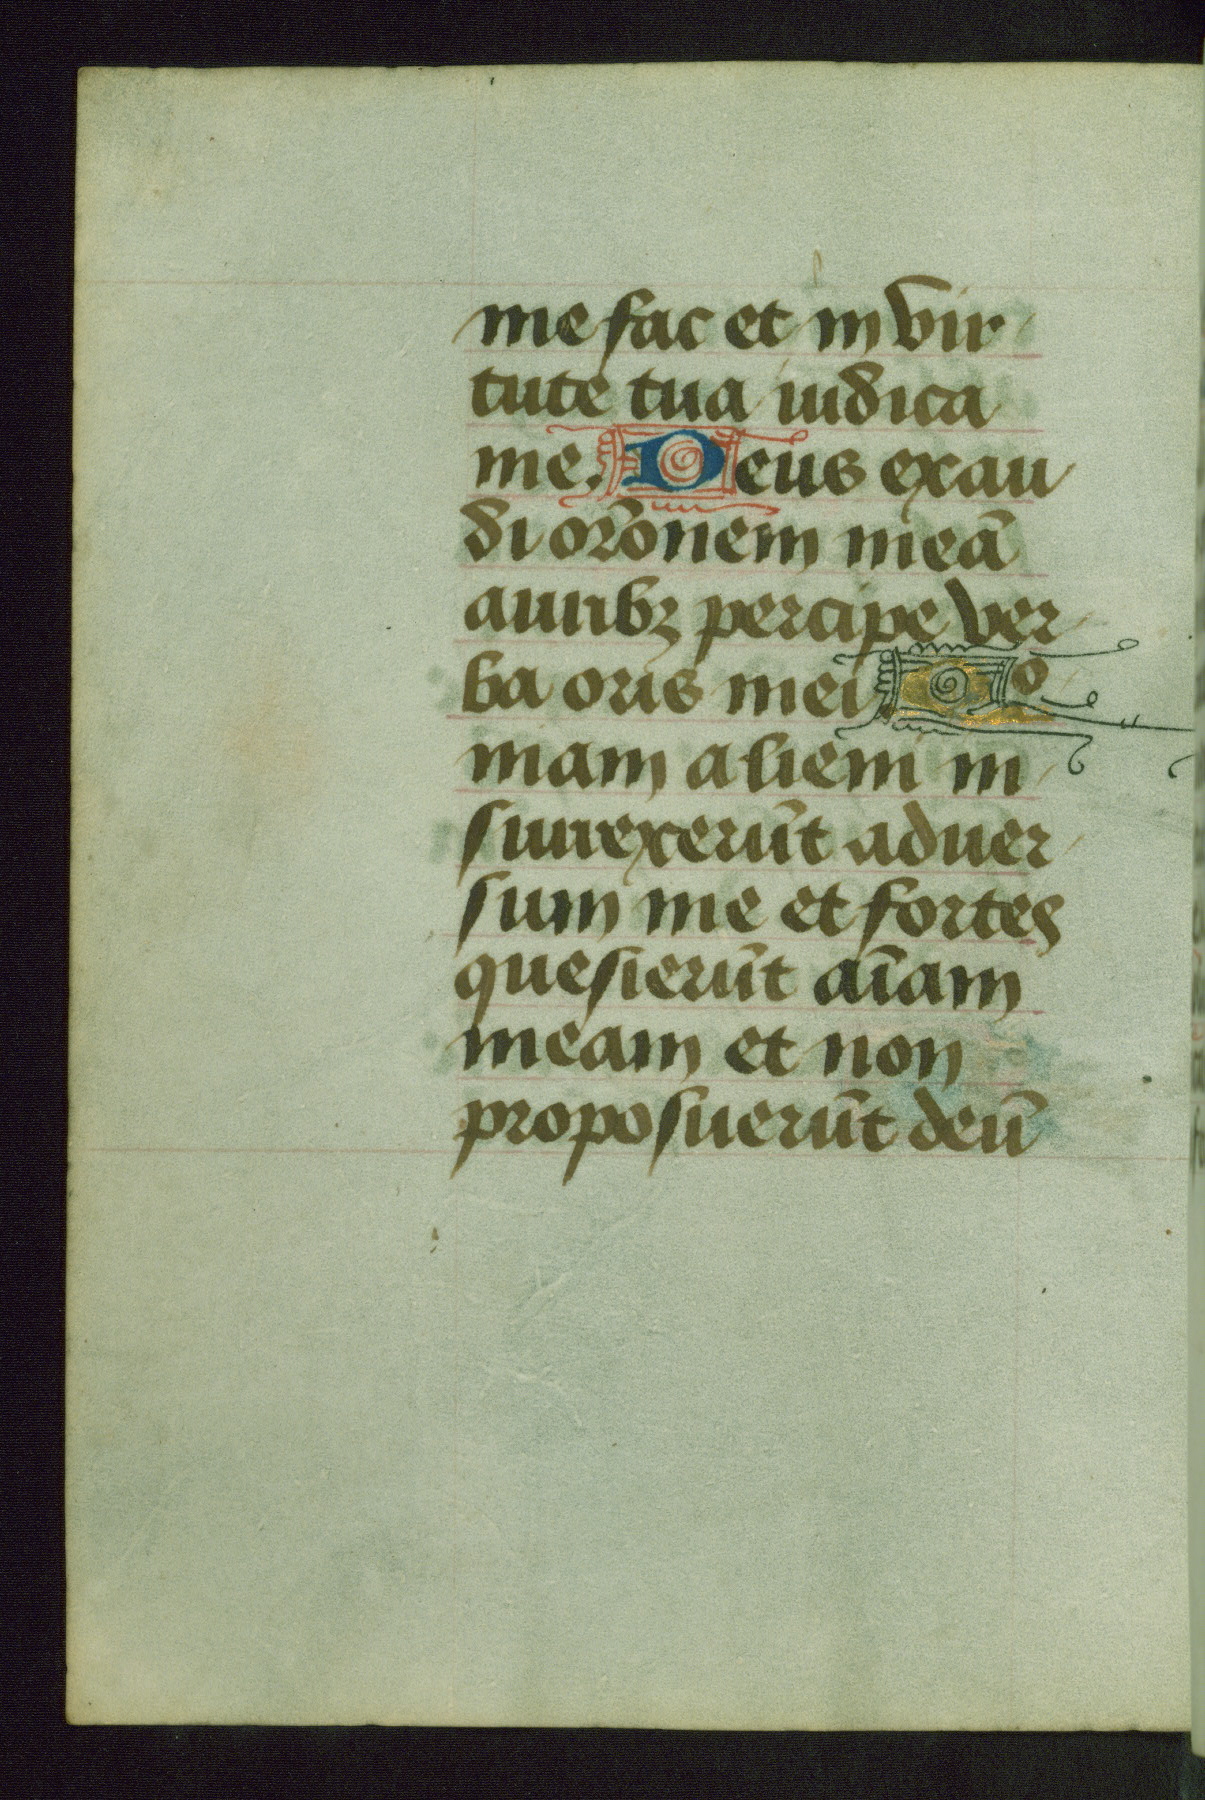 me fac et in vir
tute tua iudica
me. Deus exau
di orōnem meā
auribꝫ percipe ver
ba oris mei Qō
niam alieni in
surrexerūt aduer
sum me et fortes
quesierūt aīam
meam et non
proposuerūt deū